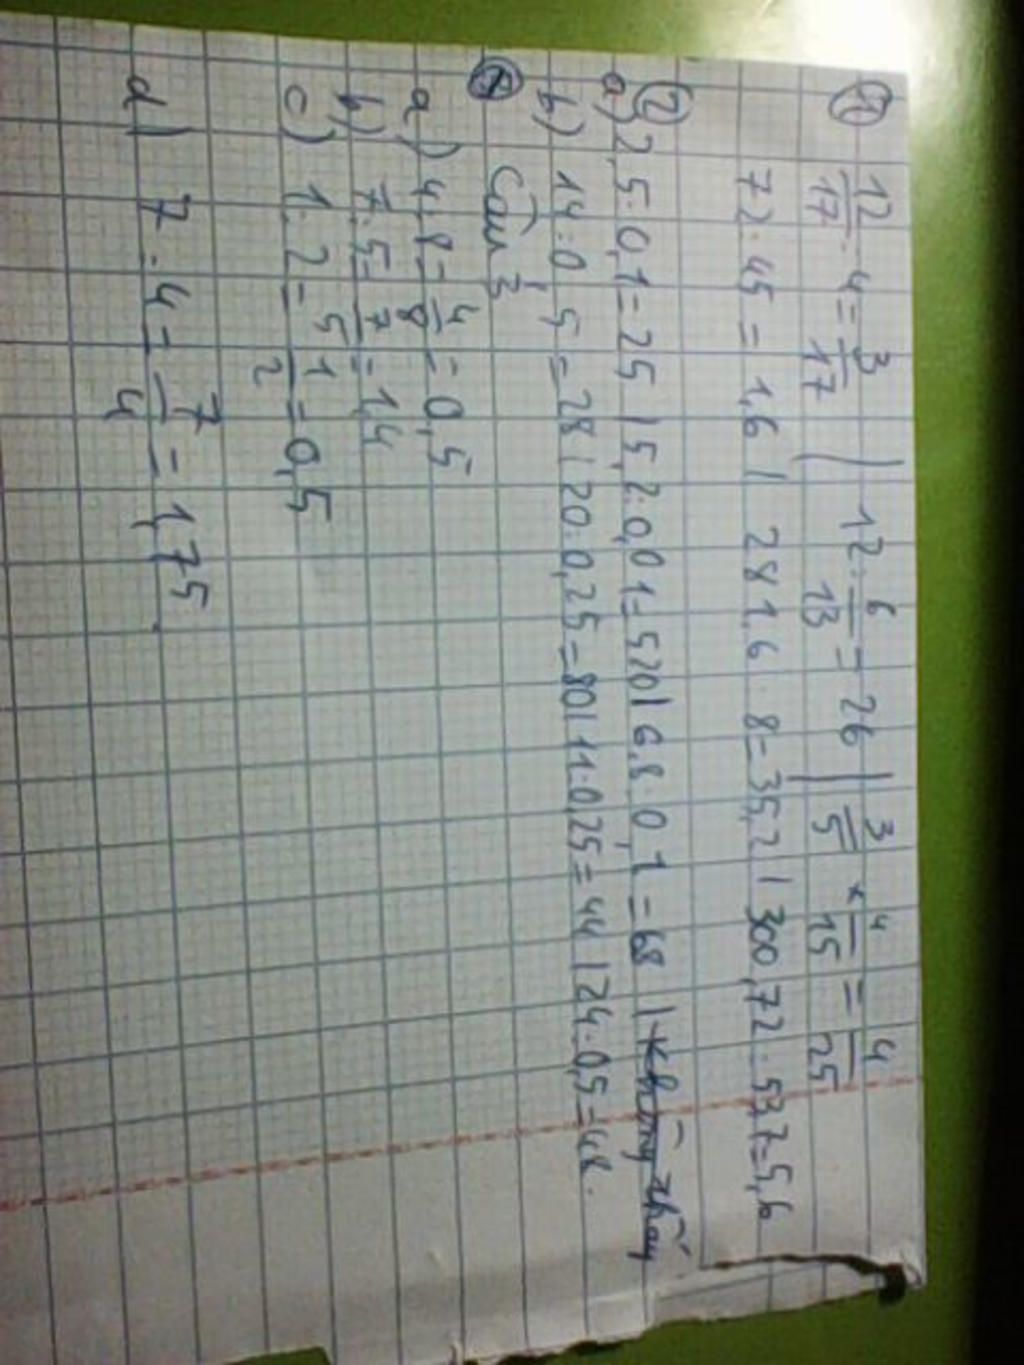 ① 12/17 : 4 = 3/17 | 12 : 6/13 = 26 | 3/5 × 4/15 = 4/25
72 : 45 = 1,6 | 281,6 : 8 = 35,2 | 300,72 : 53,7 = 5,6
②
a) 2,5 : 0,1 = 25 | 5,2 : 0,01 = 520 | 6,8 : 0,1 = 68 |
b) 14 : 0,5 = 28 | 20 : 0,25 = 80 | 11 : 0,25 = 44 | 24 : 0,5 = 48.
Câu 3
a) 4 : 8 = 4/8 = 0,5
b) 7 : 5 = 7/5 = 1,4
c) 1 : 2 = 1/2 = 0,5
d) 7 : 4 = 7/4 = 1,75